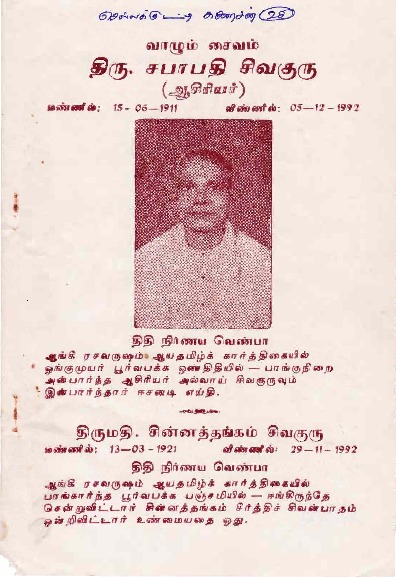 கணேசன் (28)
வாழும் சைவம்
திரு. சபாபதி சிவகுரு
(ஆசிரியர்)
மண்ணில்: 15-06-1911 விண்ணில்: 05-12-1992
திதி நிர்ணய வெண்பா
ஆங்கி ரசவருஷம் ஆயதமிழ்க் கார்த்திகையில்
ஓங்குமுயர் பூர்வபக்க ஏணதிதியில் — பாங்குநிறை
அன்பார்ந்த ஆசிரியர் அல்வாய் சிவகுருவும்
இன்பார்ந்தார் ஈசனடி எய்தி.
திருமதி. சின்னத்தங்கம் சிவகுரு
மண்ணில்: 13-03-1921 விண்ணில்: 29-11-1992
திதி நிர்ணய வெண்பா
ஆங்கி ரசவருஷம் ஆயதமிழ்க் கார்த்திகையில்
பாங்கார்ந்த பூர்வபக்க பஞ்சமியில் — ஈங்கிருந்தே
சென்றுவிட்டார் சின்னத்தங்கம் சீர்த்திச் சிவன்பாதம்
ஒன்றிவிட்டார் உண்மையதை ஓது.